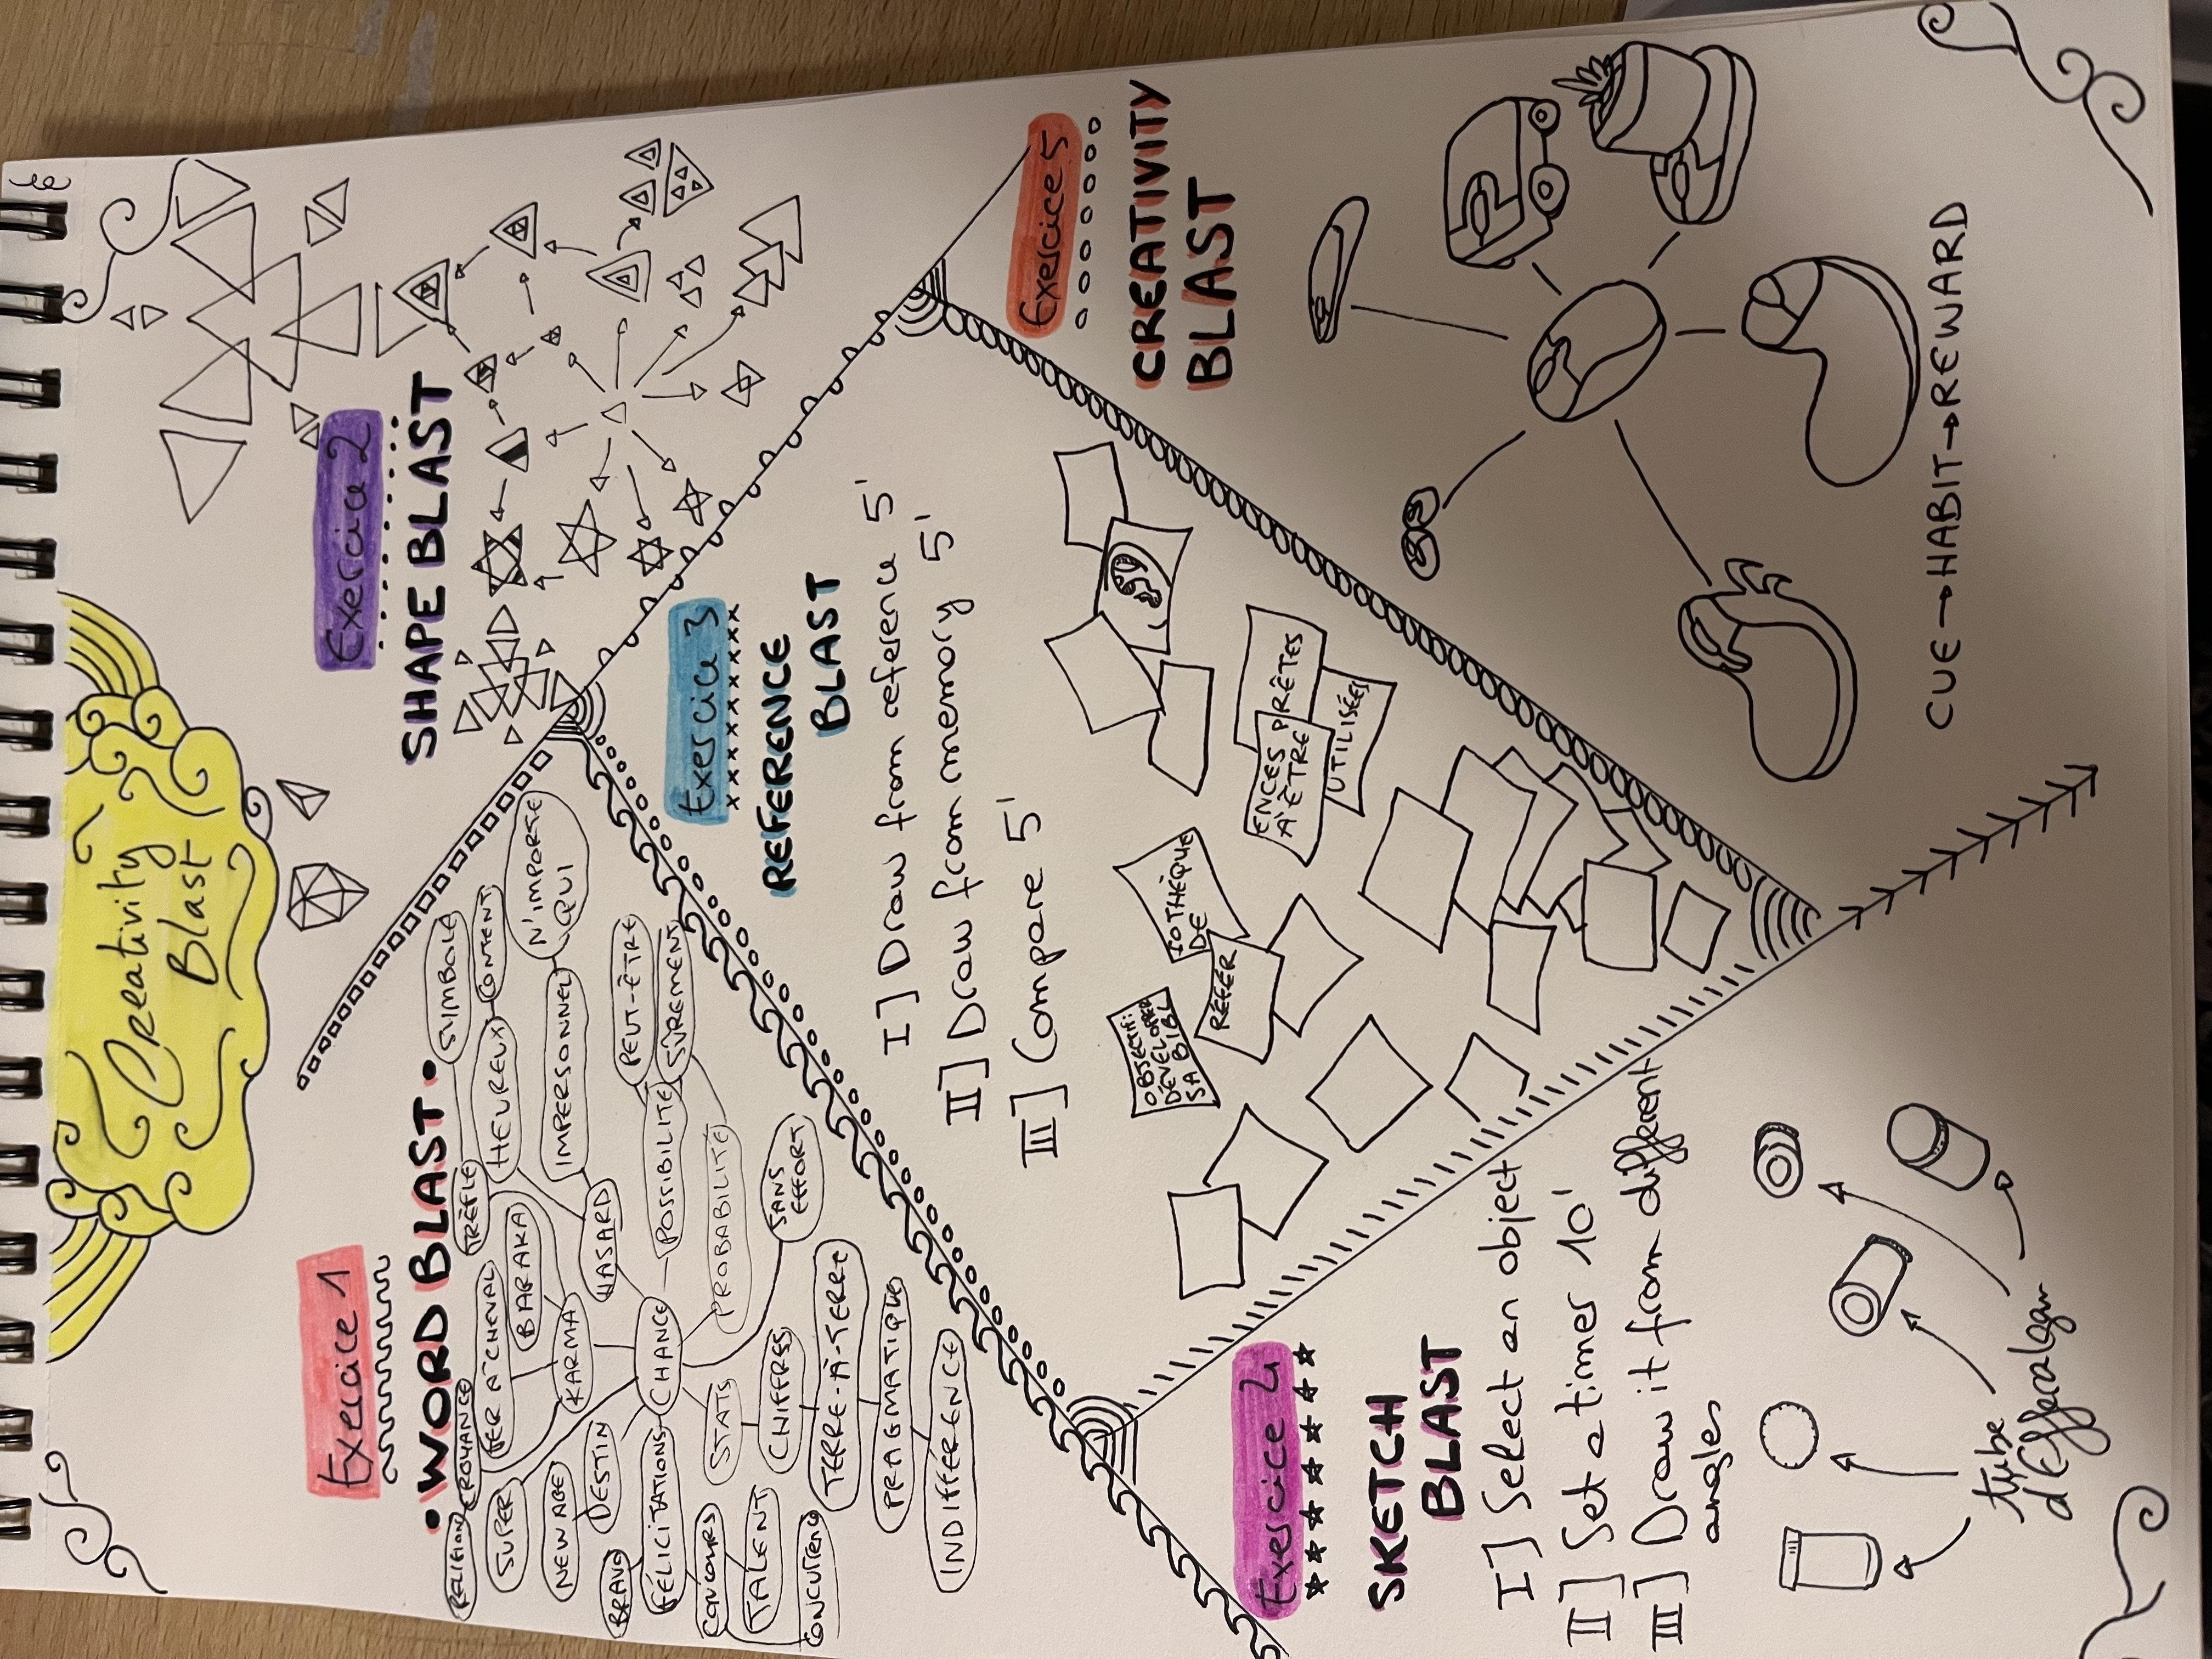 Creativity
Blast
Exercice 1
WORD BLAST
RELIGION
CROYANCE
TRÈFLE
SYMBOLE
SUPER
FER À CHEVAL
HEUREUX
CONTENT
NEW ABE
BARAKA
N'IMPORTE
QUI
KARMA
IMPERSONNEL
DESTIN
HASARD
BRAVO
FÉLICITATIONS
CHANCE
POSSIBILITÉ
PEUT-ÊTRE
SÛREMENT
CONCOURS
STATS
PROBABILITÉ
TALENT
CHIFFRES
SANS
EFFORT
CONCURRENCE
TERRE-À-TERRE
PRAGMATIQUE
INDIFFÉRENCE
Exercice 2
SHAPE BLAST
Exercice 3
REFERENCE
BLAST
I] Draw from reference 5'
II] Draw from memory 5'
III] Compare 5'
OBJECTIF:
DÉVELOPPER
SA BIBL
IOTHÈQUE
DE
RÉFÉR
ENCES PRÊTES
À ÊTRE
UTILISÉES
Exercice 4
SKETCH
BLAST
I] Select an object
II] Set a timer 10'
III] Draw it from different
angles
tube
d'Efferalgan
Exercice 5
CREATIVITY
BLAST
CUE→HABIT→REWARD